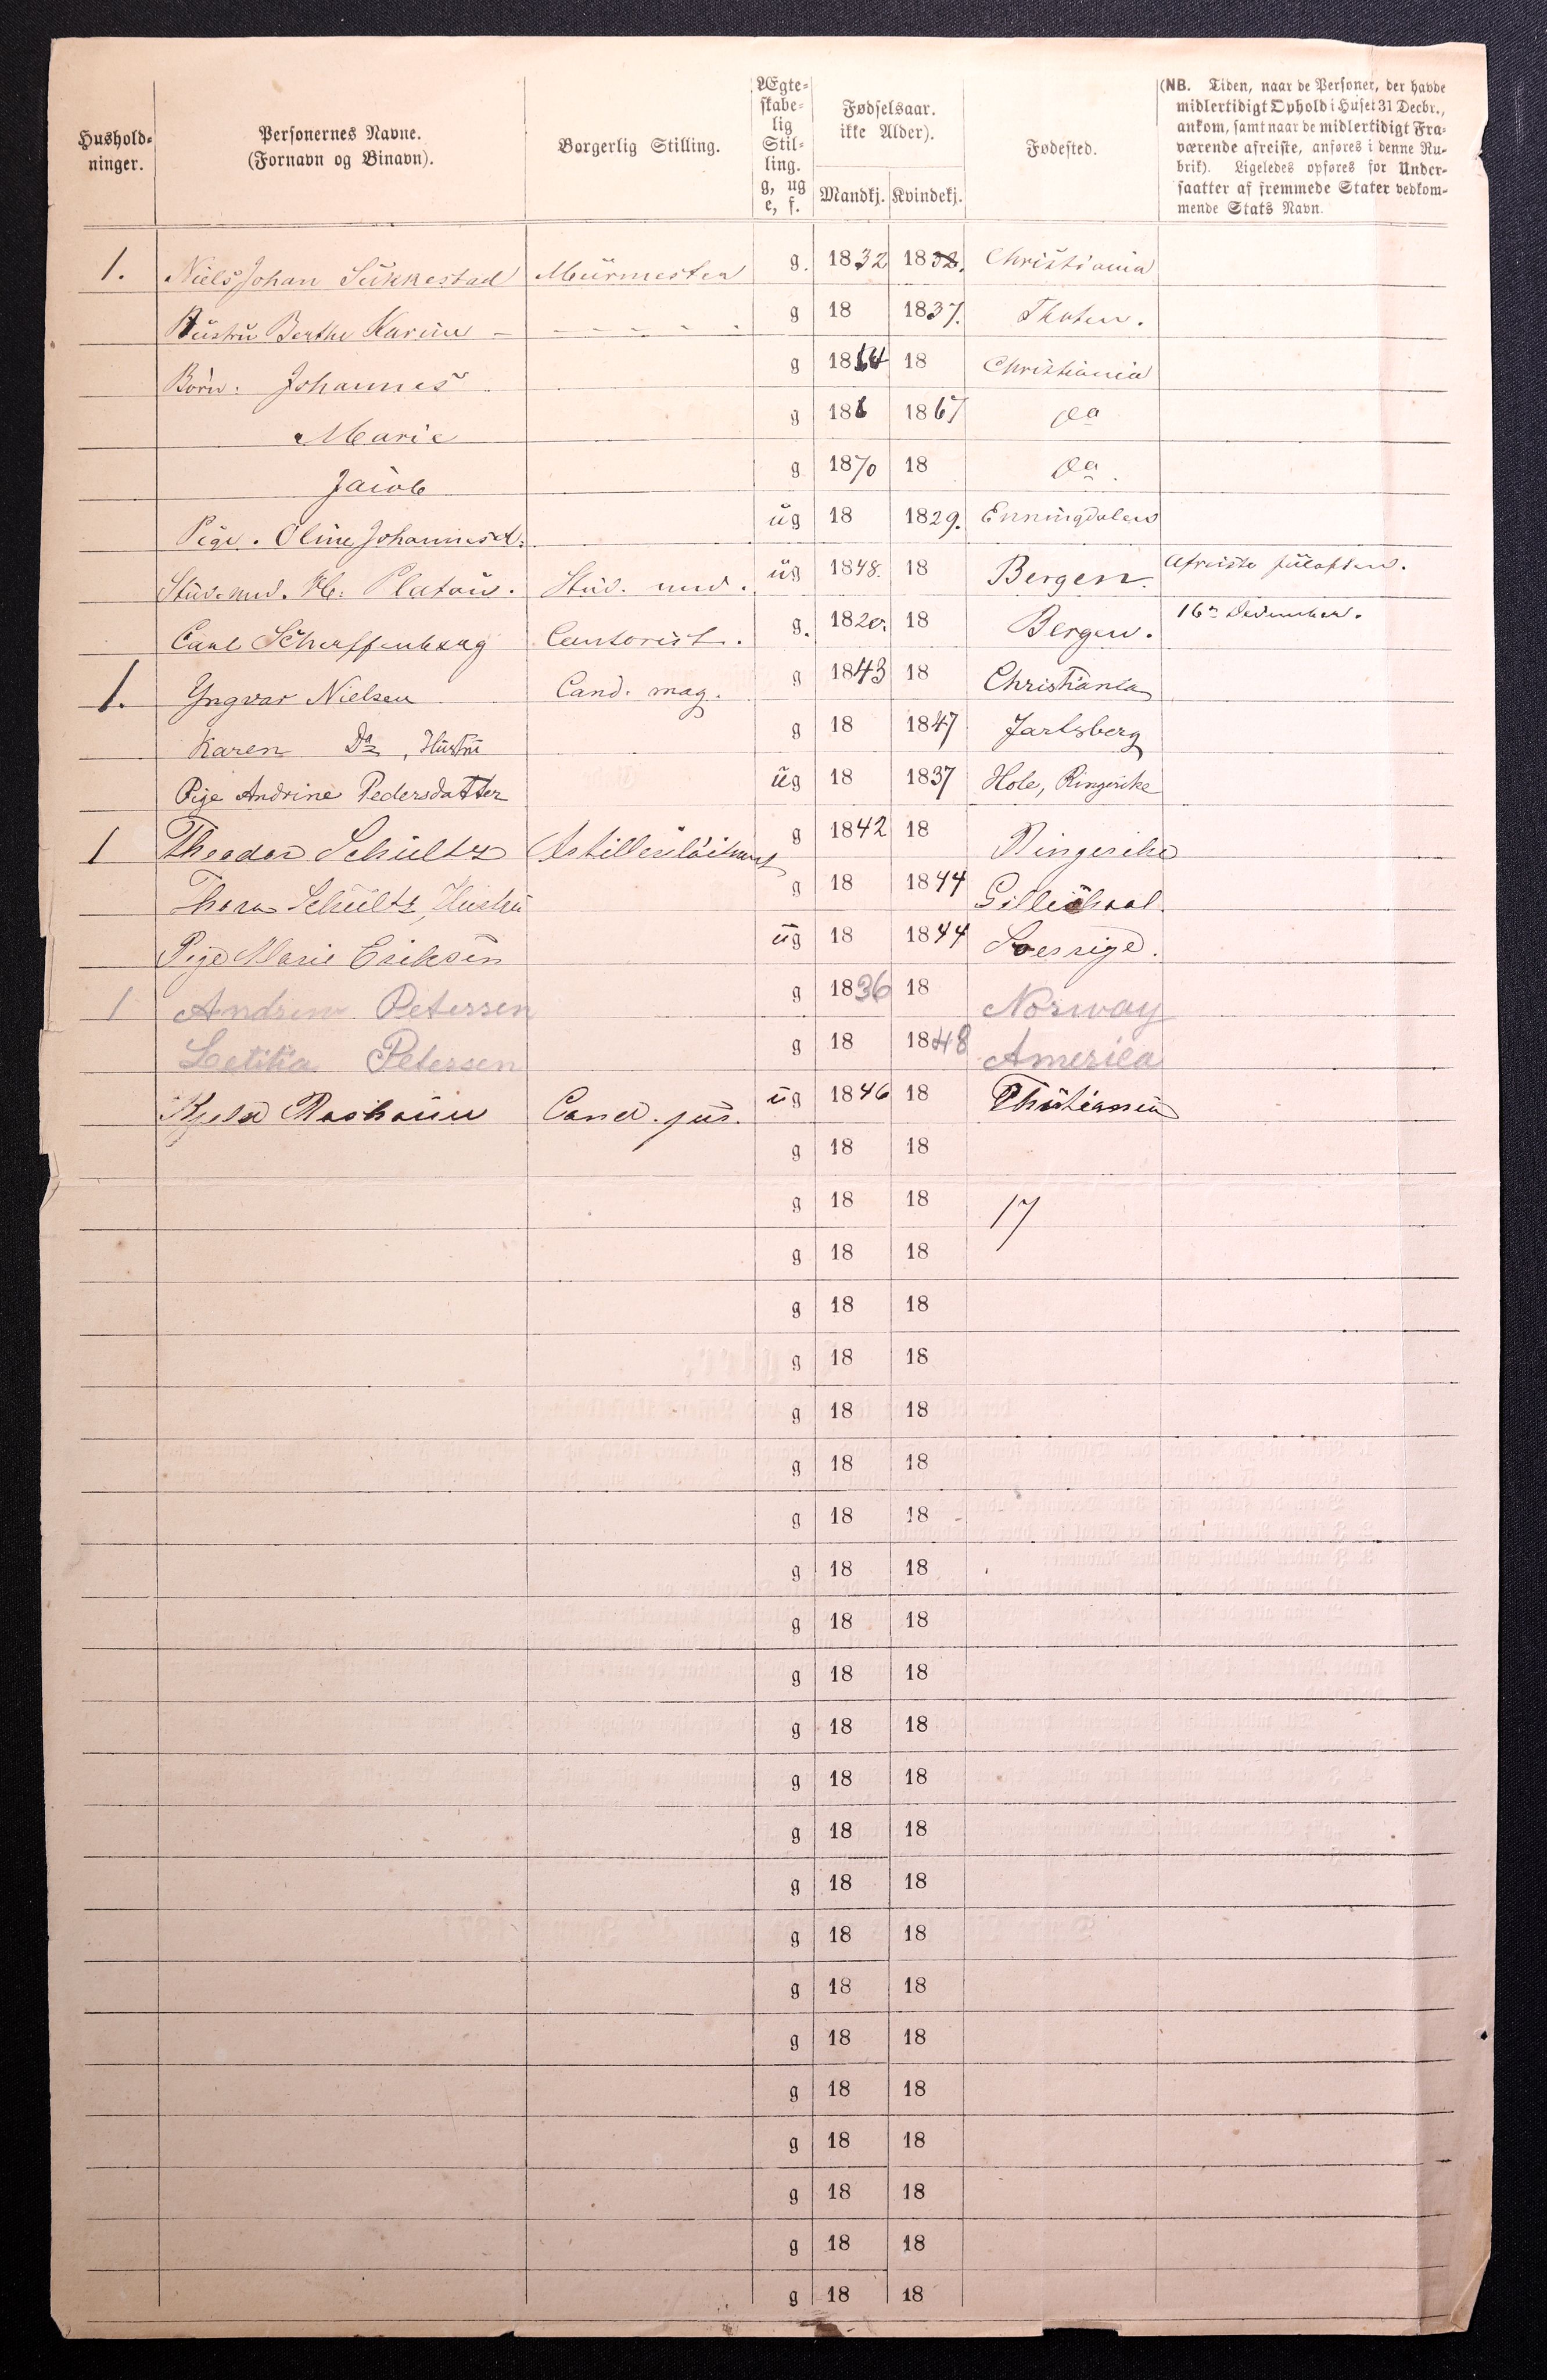 Hushold-
ninger.
Personernes Navne.
(Fornavn og Binavn).
Borgerlig Stilling.
Ægte-
skabe-
lig
Stil-
ling.
g, ug
e, f.
Fødselsaar.
ikke Alder).
Mandkj. Kvindekj.
Fødested.
(NB. Tiden, naar de Personer, der havde
midlertidigt Ophold i Huset 31 Decbr.,
ankom, samt naar de midlertidigt Fra-
værende afreiste, anføres i denne Ru-
brik). Ligeledes opføres for Under-
saatter af fremmede Stater vedkom-
mende Stats Navn.
1. Niels Johan Sukkestad Murmester g. 1832 1832. Christiania
Hustru Berthe Karine g 18 1837. Thoten.
Børn: Johannes g 1864 18 Christiania
Marie g 186 1867 Da
Jacob g 1870 18 Da.
Pige. Oline Johannesd. ug 18 1829. Enningdalen
Stud. med. Platou. Stud. med. ug 1848. 18 Bergen. Afreiste juleaften.
Carl Scharffenberg Contorist. g. 1820. 18 Bergen. 16de December.
1. Yngvar Nielsen Cand. mag. g 1843 18 Christiania
Karen Da, Hustru g 18 1847 Jarlsberg
Pige Andrine Pedersdatter ug 18 1837 Hole, Ringerike
1 Theodor Schultz g 1842 18 Ringerike
Thora Schultz, Hustru g 18 1844
Pige Marie Eriksen ug 18 1844 Sverrige.
1 Andrew Petersen g 1836 18 Norway
Letitia Petersen g 18 1848 America
Kjeld Cand. jur. ug 1846 18 Christiania
g 18 18
g 18 18 17
g 18 18
g 18 18
g 18 18
g 18 18
g 18 18
g 18 18
g 18 18
g 18 18
g 18 18
g 18 18
g 18 18
g 18 18
g 18 18
g 18 18
g 18 18
g 18 18
g 18 18
g 18 18
g 18 18
g 18 18
g 18 18